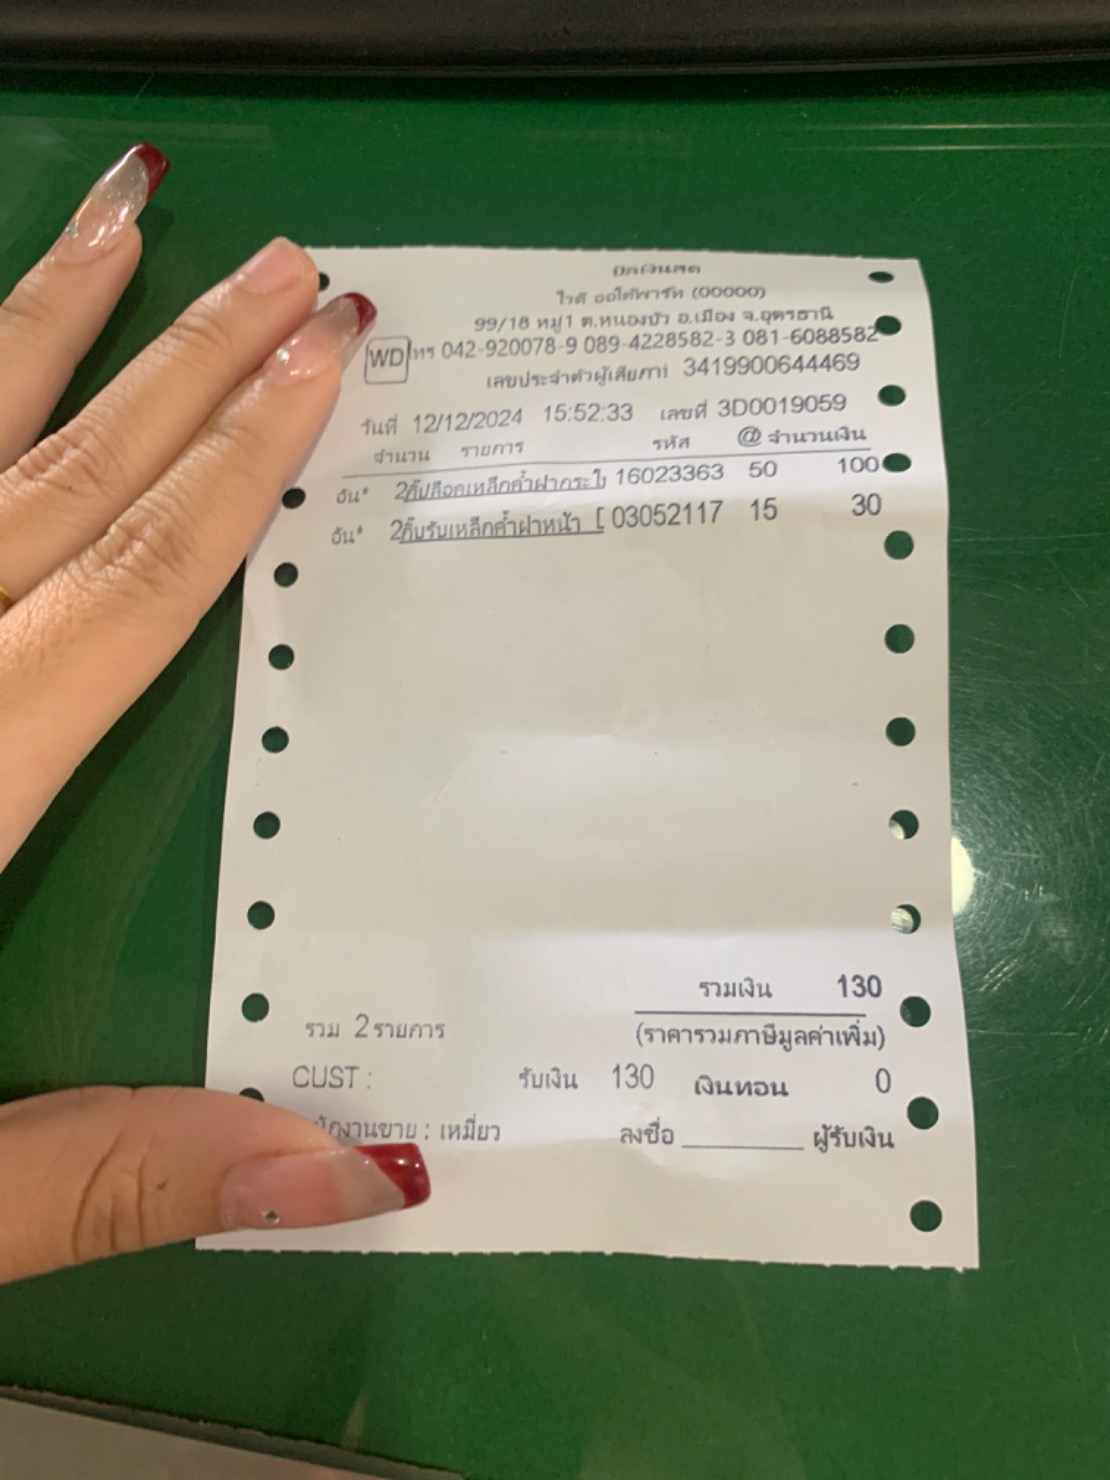 บิลเงินสด
ไวดี ออโต้พาร์ท (00000)
99/18 หมู่1 ต.หนองบัว อ.เมือง จ.อุดรธานี
WD โทร 042-920078-9 089-4228582-3 081-6088582
เลขประจำตัวผู้เสียภาษี 3419900644469
วันที่ 12/12/2024 15:52:33 เลขที่ 3D0019059
จำนวน รายการ รหัส @ จำนวนเงิน
อัน* 2 กิ๊ปล็อคเหล็กค้ำฝากระโ 16023363 50 100
อัน* 2 กิ๊บรับเหล็กค้ำฝาหน้า [ 03052117 15 30
รวมเงิน 130
รวม 2 รายการ (ราคารวมภาษีมูลค่าเพิ่ม)
CUST : รับเงิน 130 เงินทอน 0
นักงานขาย : เหมี่ยว ลงชื่อ ________ ผู้รับเงิน